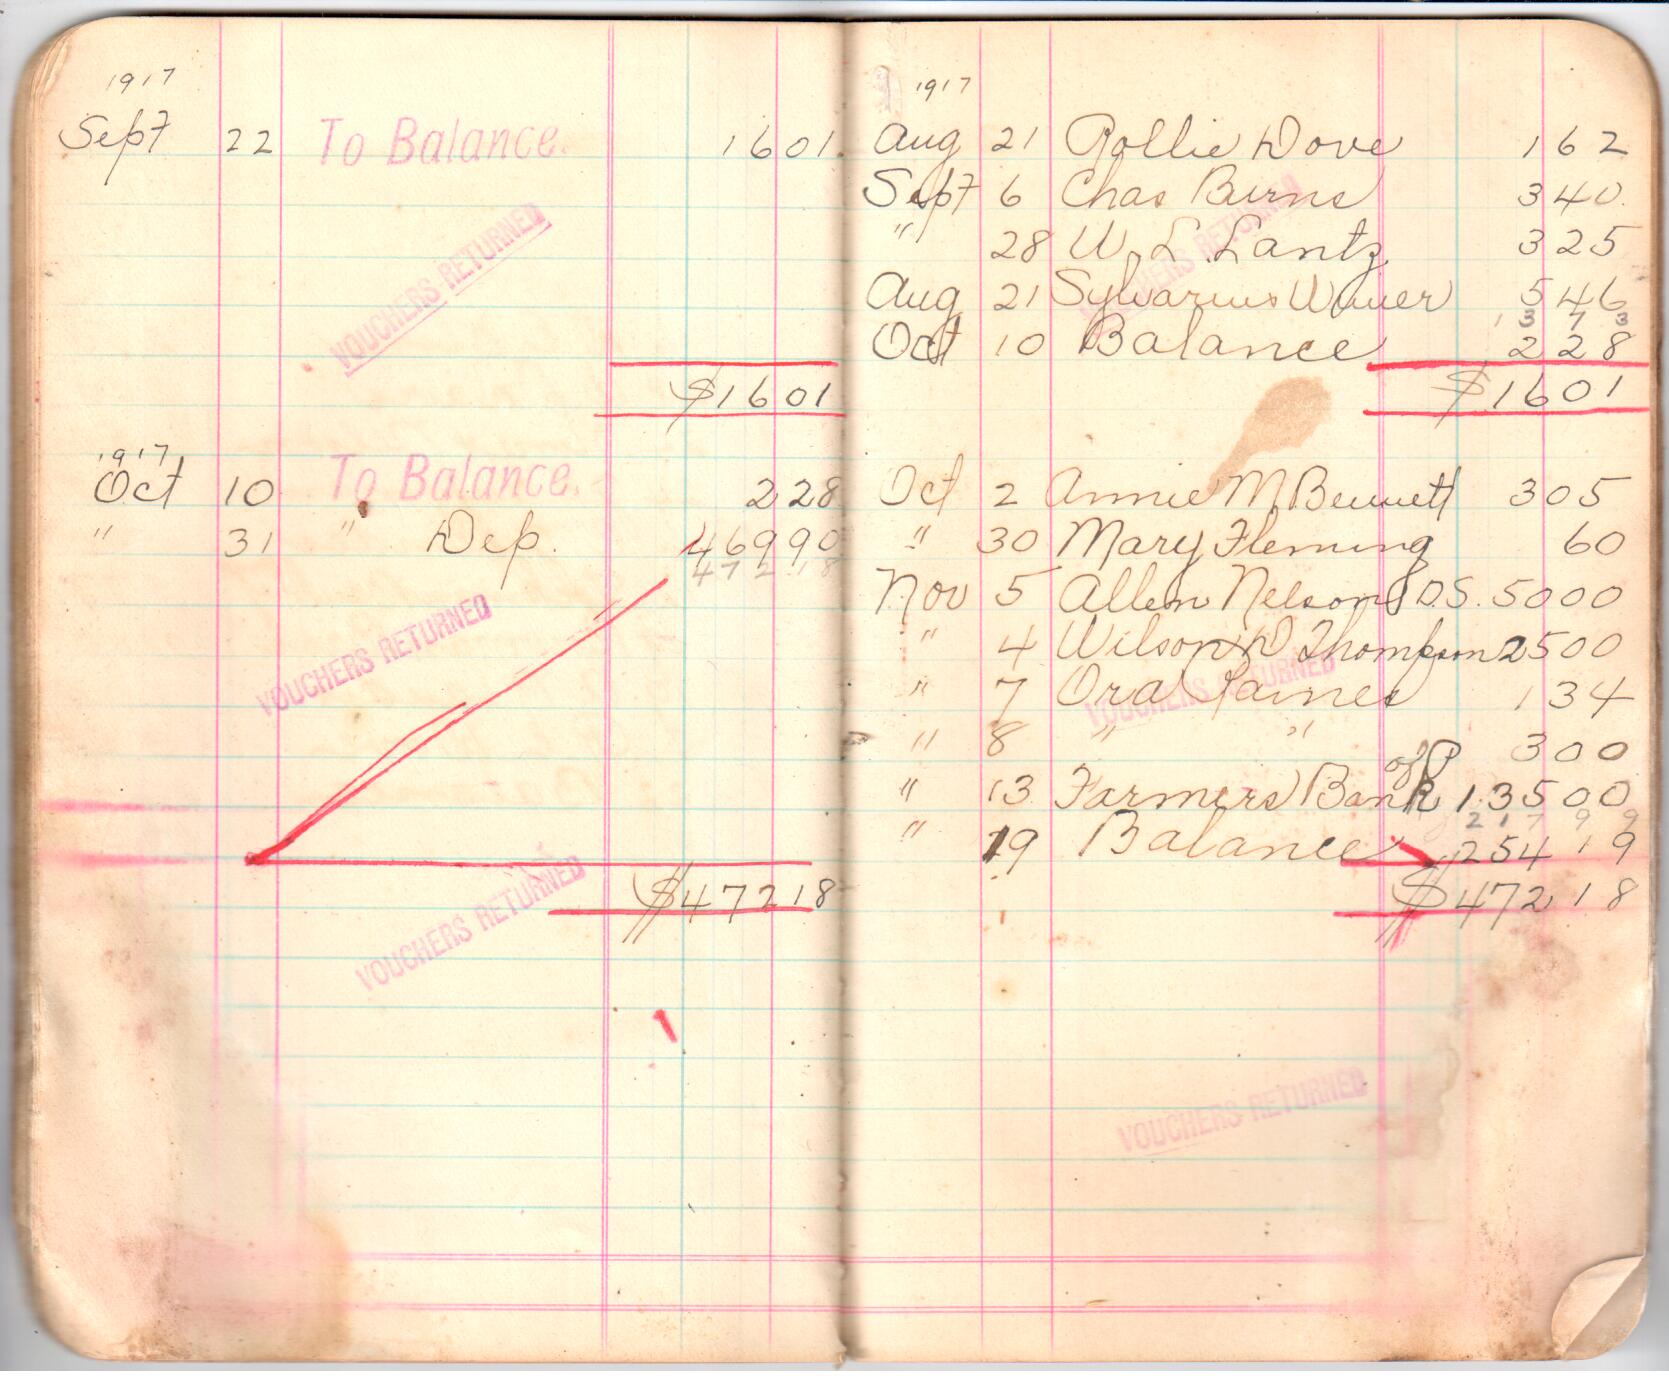 1917
Sept 22 To Balance. 1601
VOUCHERS RETURNED
$1601
1917
Oct 10 To Balance. 228
" 31 " Dep. 46990
472 18
VOUCHERS RETURNED
$47218
VOUCHERS RETURNED
1917
Aug 21 Pollie Dove 162
Sept 6 Chas Burns 340
" 28 W. L. Lantz 325
VOUCHERS RETURNED
Aug 21 Sylvarius 546
1373
Oct 10 Balance 228
$1601
Oct 2 Annie M Bennett 305
" 30 Mary Fleming 60
Nov 5 Allen Nelson D.S. 5000
" 4 Wilson Thompson 2500
" 7 Ora Raines 134
VOUCHERS RETURNED
" 8 " " 300
" 13 Farmers Bank of P 13500
217 99
" 19 Balance 254 19
$472 18
VOUCHERS RETURNED